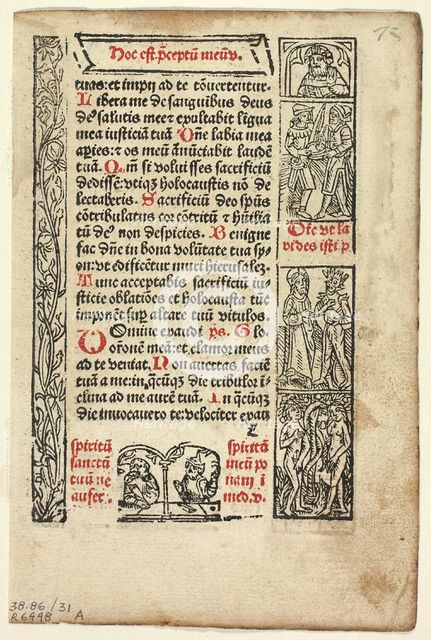 Hoc est p̄ceptū meūv.
73
tuas: et impij ad te cōuertentur.
Libera me de sanguibus deus
de9 salutis mee: et exultabit ligua
mea iusticiā tuā Dn̄e labia mea
apies: ⁊ os meū ānūciabit laudē
tuā. Qm̄ si voluisses sacrificiū
dedissē: vtiqz holocaustis nō de
lectaberis. Sacrificiū deo spūs
cōtribulatus cor cōtritū ⁊ hūilia
tū de9 non despicies. Benigne
fac dn̄e in bona volūtate tua syon
: vt edificētur muri hierusalez.
Tunc acceptabis sacrificiū iu-
sticie oblatiōes et holocausta tūc
imponēt sup altare tuū vitulos.
Domine exaudi ps. Glo.
orōnē meā: et clamor meus
ad te veniat. Non auertas faciē
tuā a me: in qcūqz die tribulor i
clina ad me aurē tuā. In qcūqz
die inuocauero te: velociter exau
Dic vt la
pides isti p.
spiritū
sanctū
tuū ne
aufer.
spiritū
meū po
nam ī
med. v.
38.86/31
R6448 A